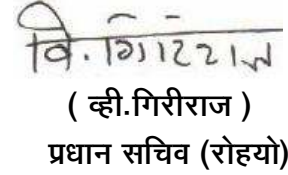 वि. गिरिराज
( व्ही.गिरीराज )
प्रधान सचिव (रोहयो)